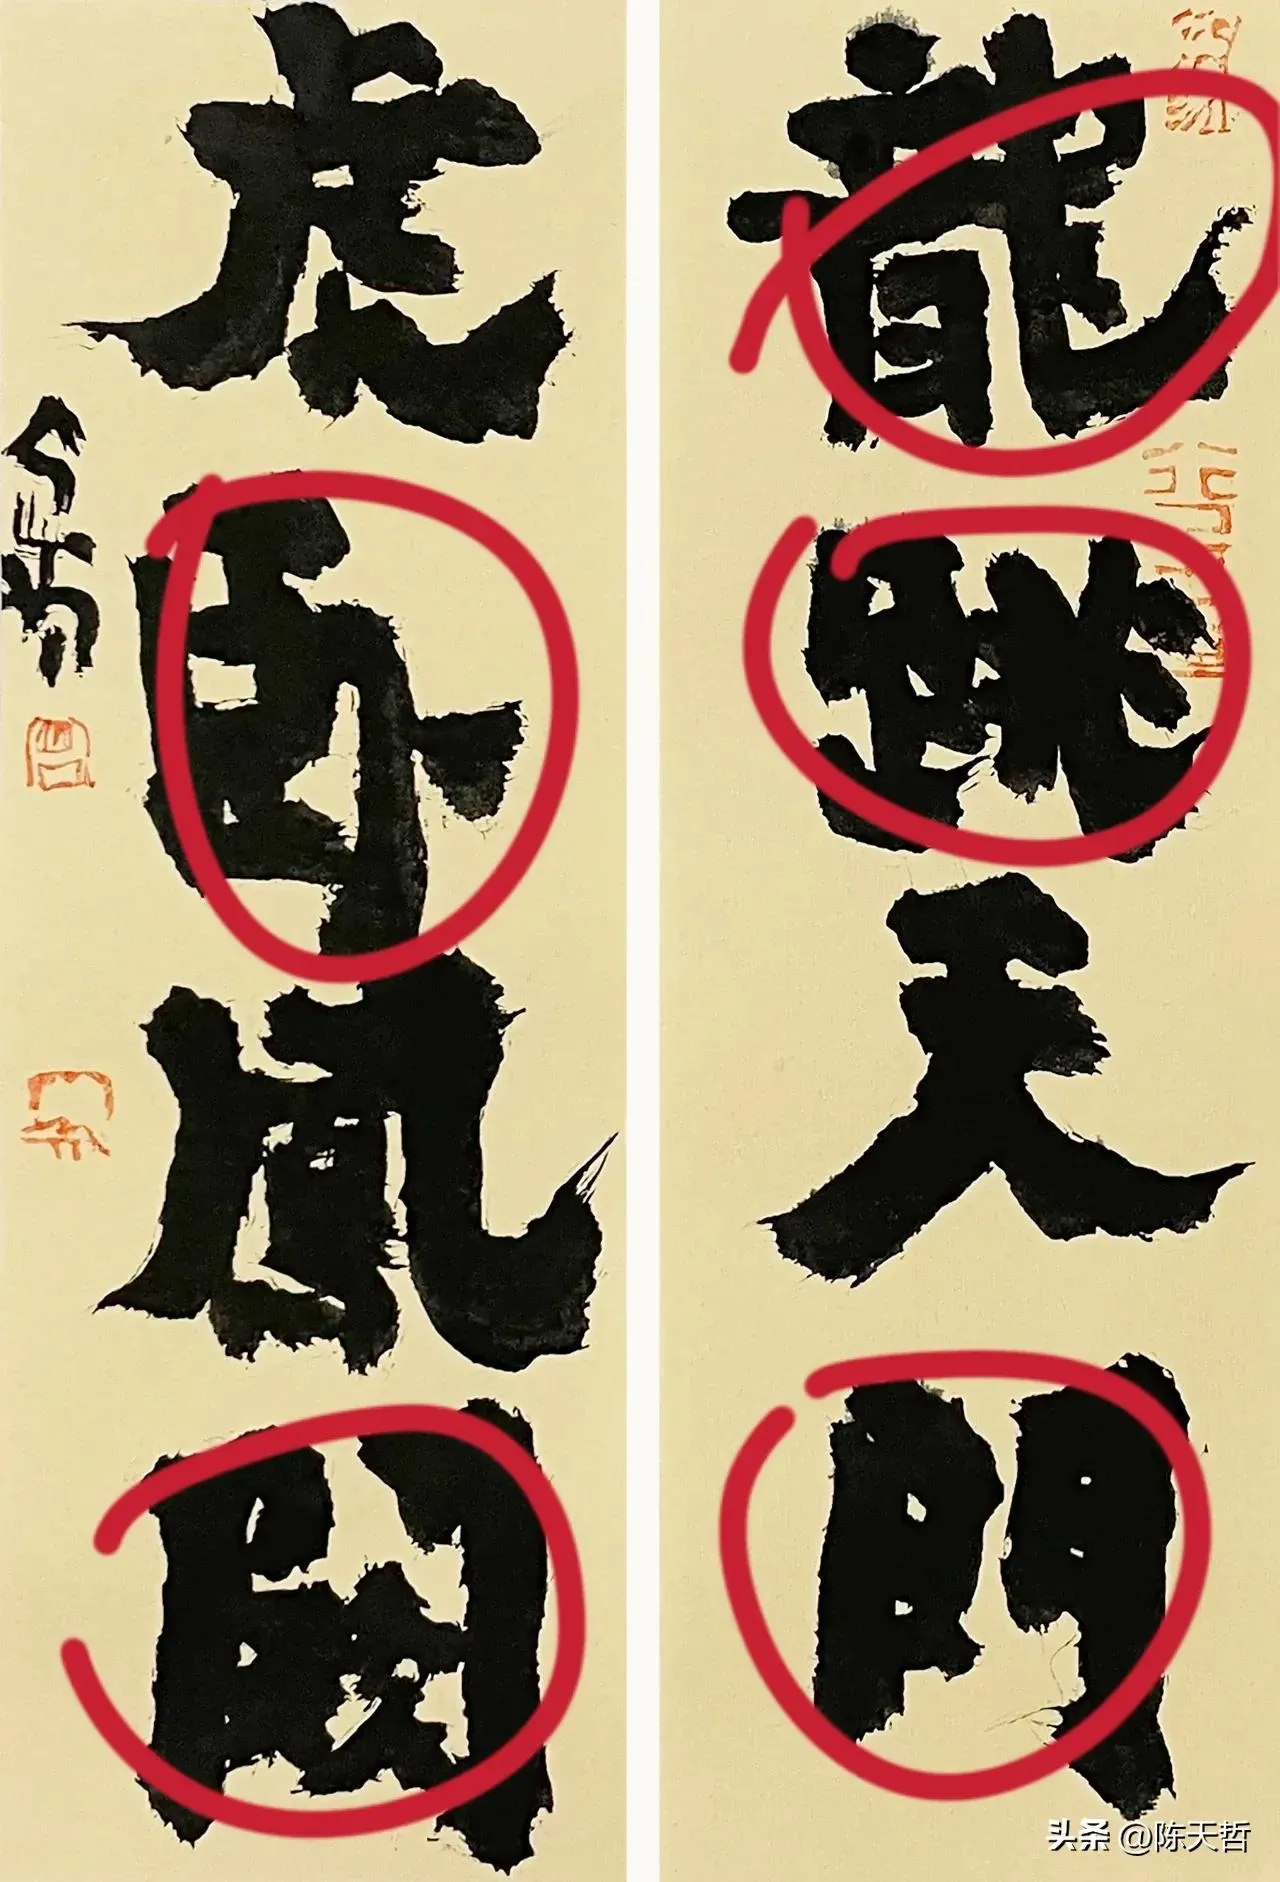 龍跳天門
虎卧鳳闕
头条 @陈天哲